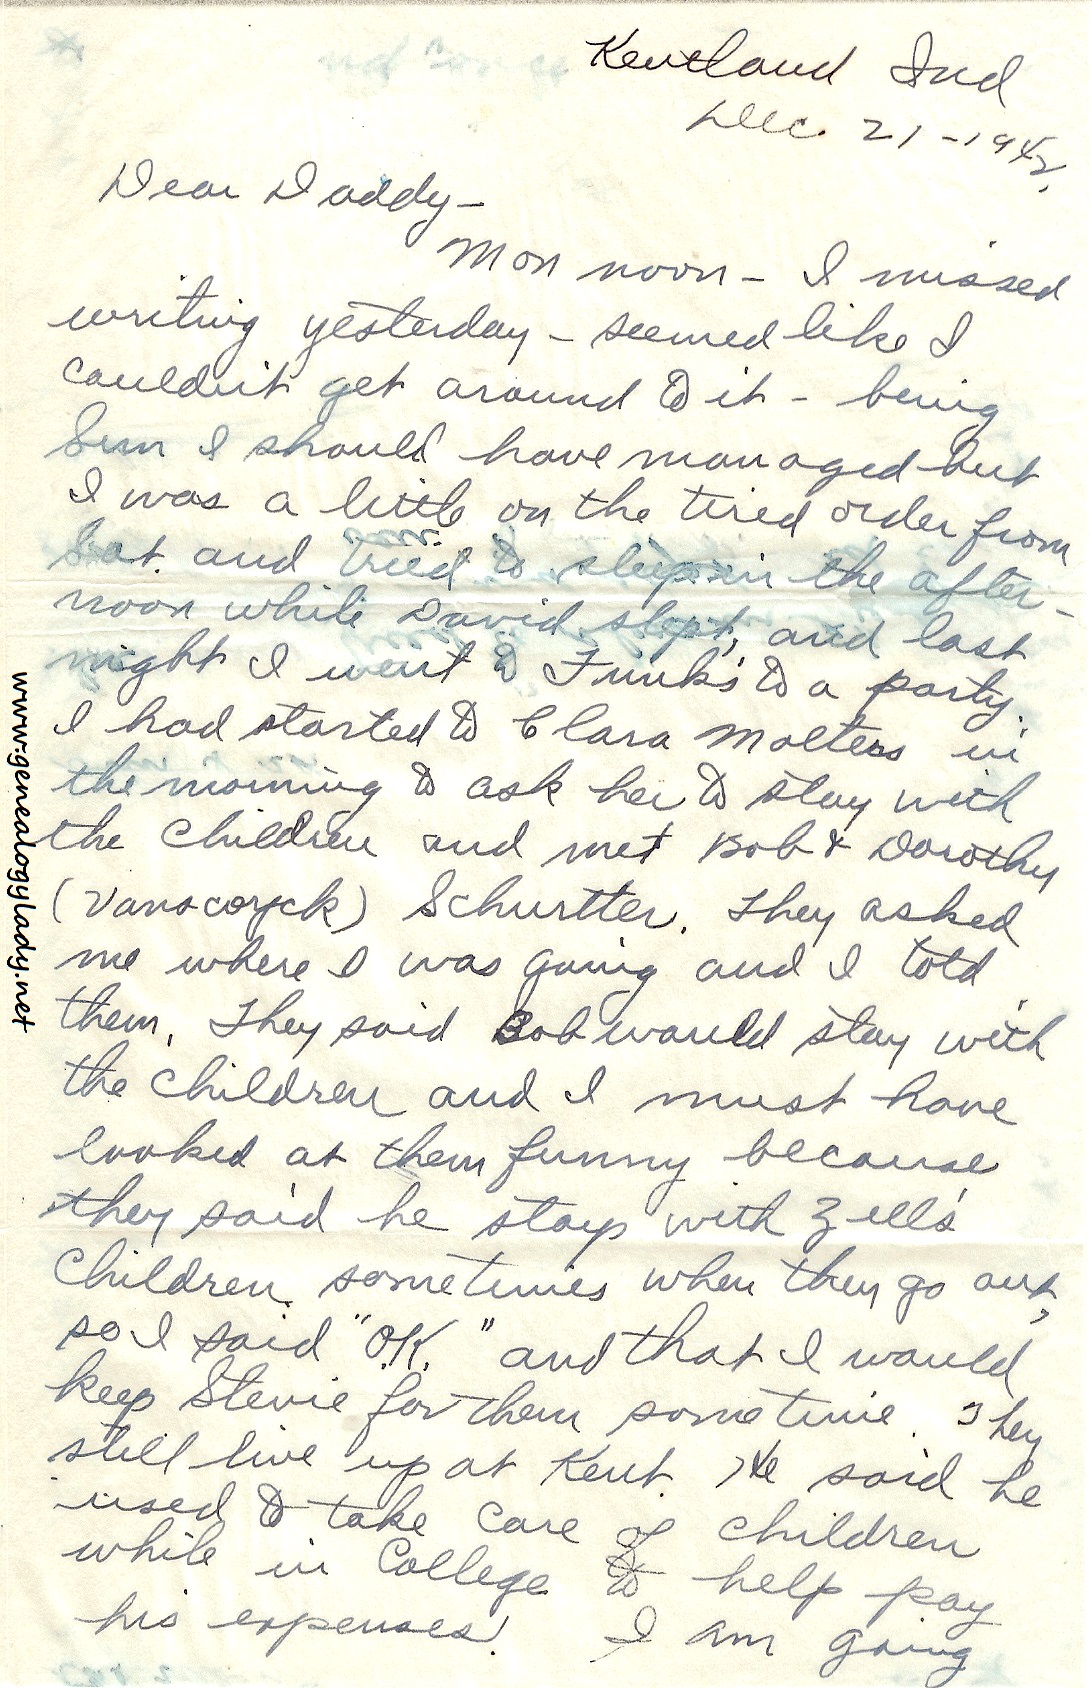 Kentland Ind
Dec. 21-1942.
Dear Daddy-
Mon noon- I missed
writing yesterday - seemed like I
couldn't get around to it - being
Sun I should have managed but
I was a little on the tired order from
Sat. and tried to sleep in the after-
noon while David slept, and last
night I went to Funk's to a party.
I had started to Clara Molters in
the morning to ask her to stay with
the children and met Bob & Dorothy
(Vanscoyck) Schurtter. They asked
me where I was going and I told
them. They said Bob would stay with
the children and I must have
looked at them funny because
they said he stays with Zell's
children sometimes when they go out,
so I said "O.K." and that I would
keep Stevie for them sometime. They
still live up at Kent. He said he
used to take care of children
while in College to help pay
his expenses! I am going
www.genealogylady.net